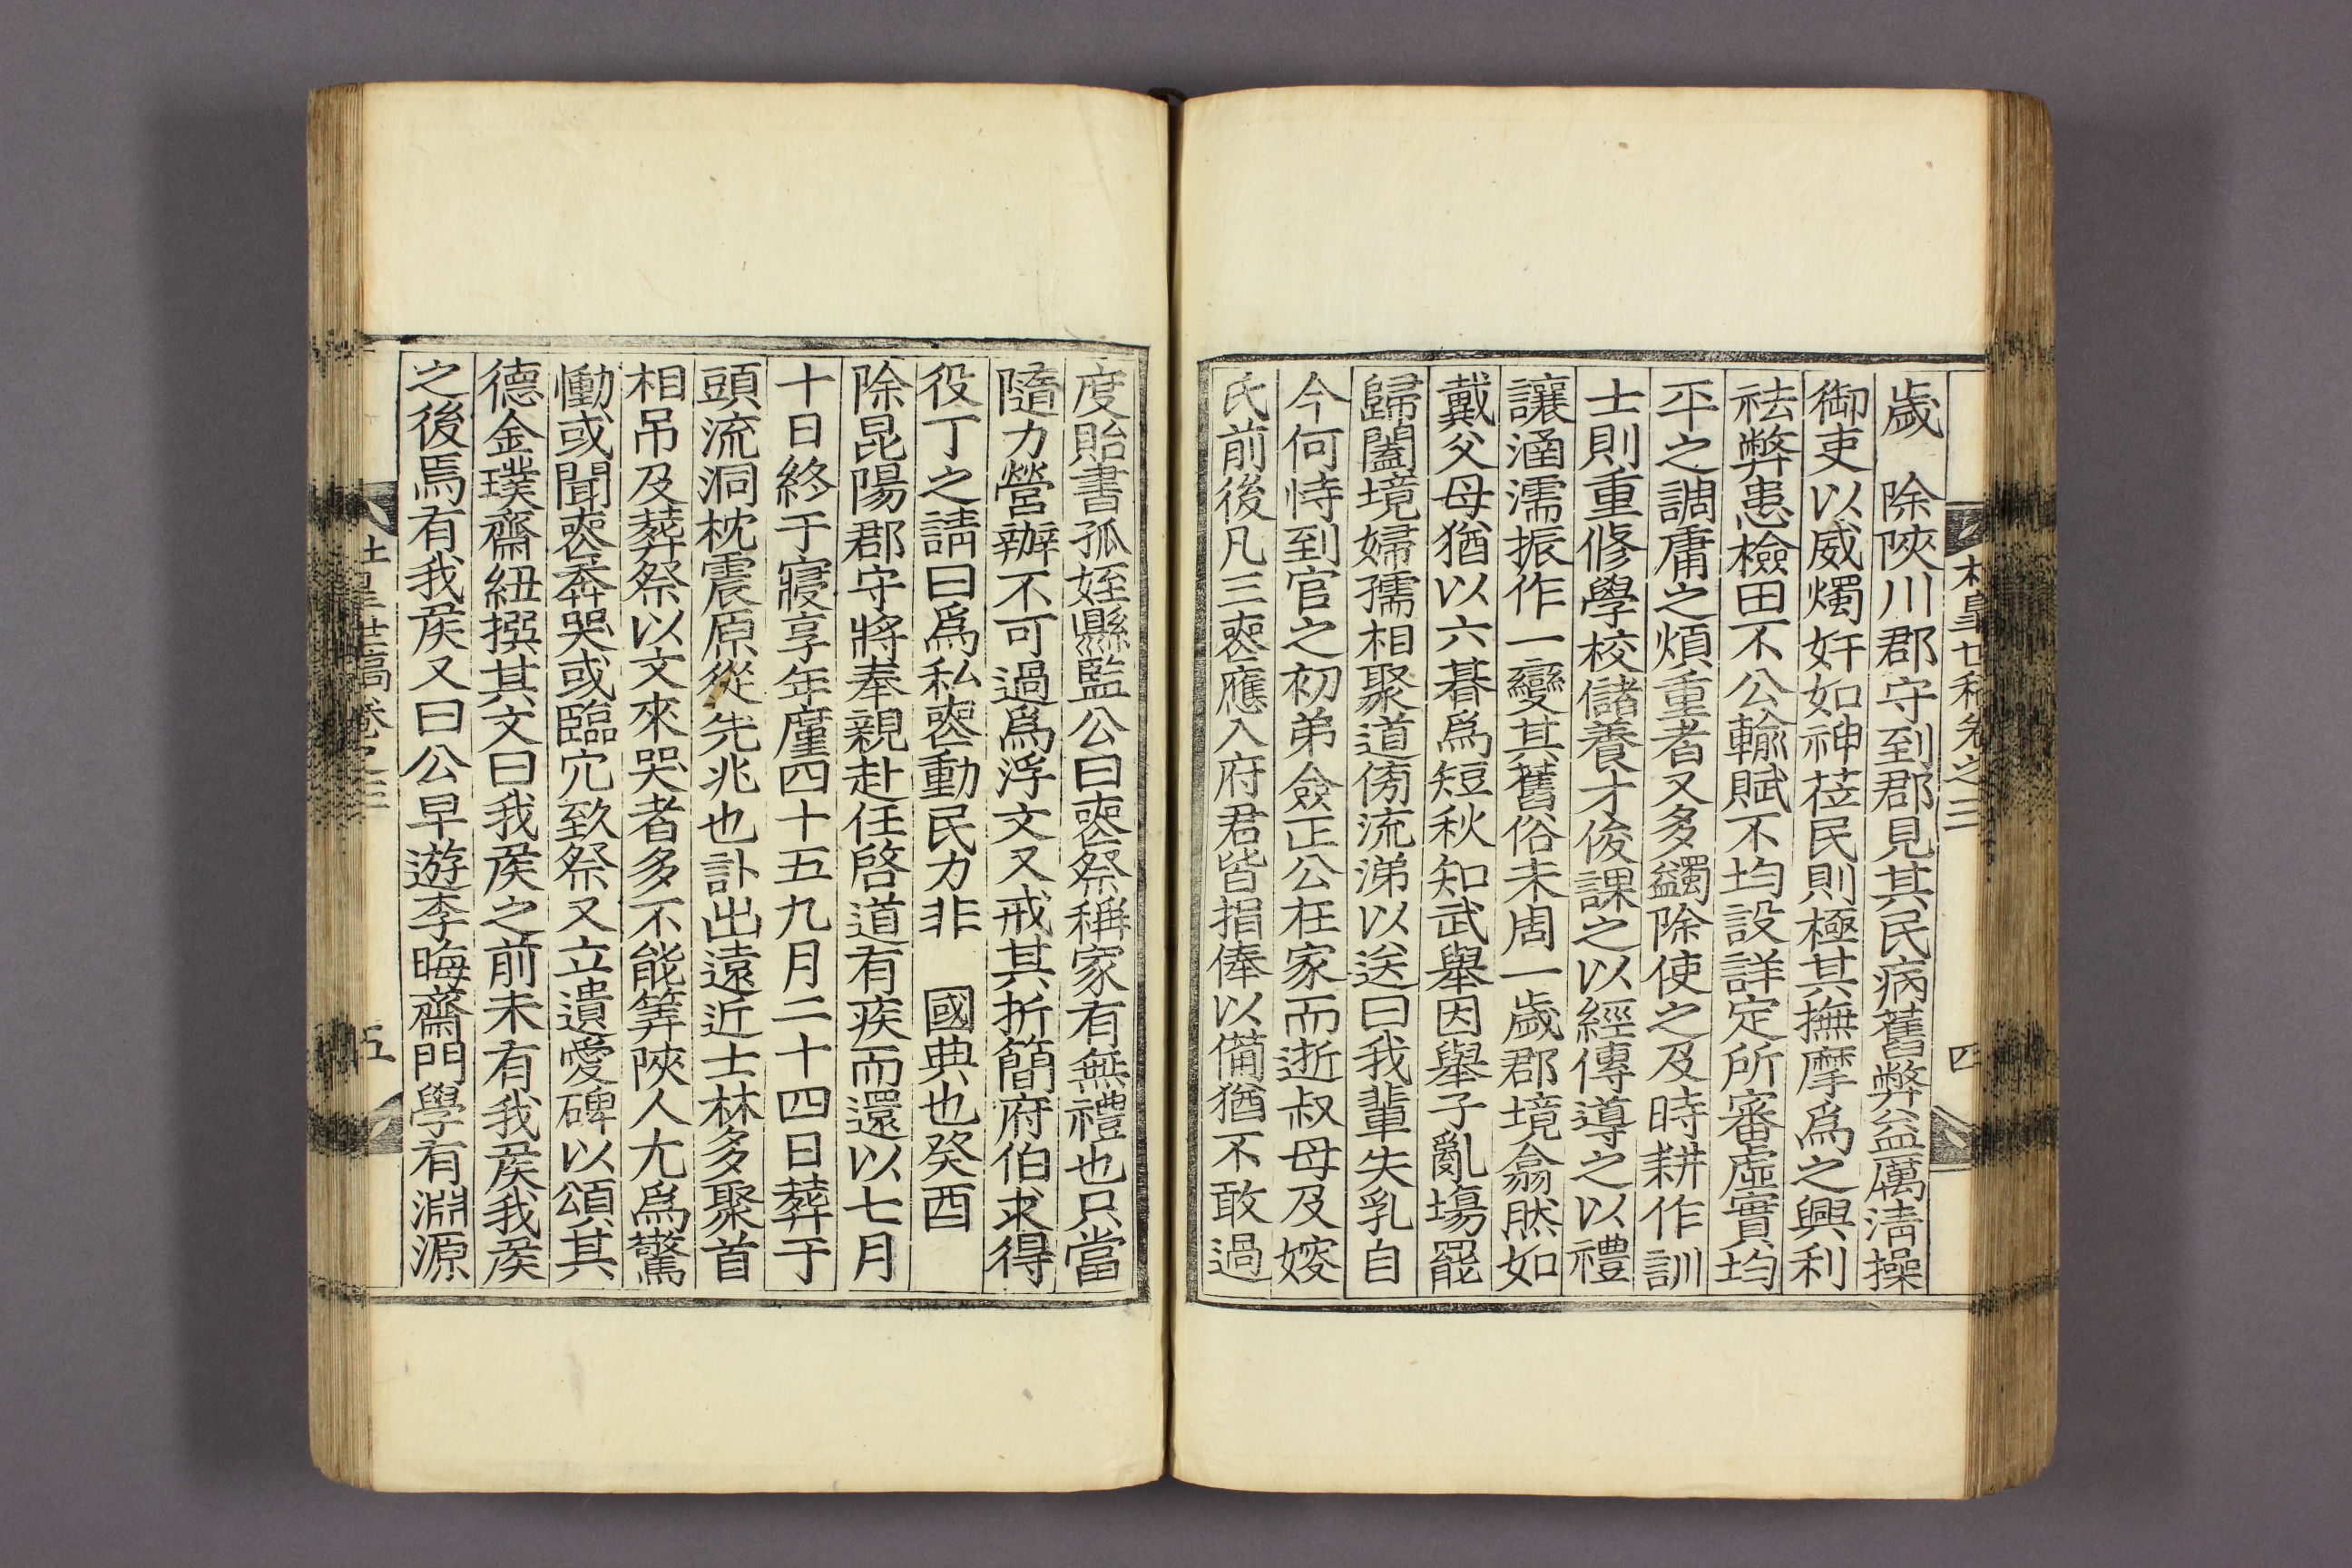 歲　除陜川郡守到郡見其民病舊弊益厲淸操
御吏以威燭奸如神莅民則極其撫摩爲之興利
祛弊患檢田不公輸賦不均設詳定所審虛實均
平之調庸之煩重者又多蠲除使之及時耕作訓
士則重修學校儲養才俊課之以經傳導之以禮
讓涵濡振作一變其舊俗未周一歲郡境翕然如
戴父母猶以六朞爲短秋知武舉因舉子亂場罷
歸闔境婦孺相聚道傍流涕以送曰我輩失乳自
今何恃到官之初弟僉正公在家而逝叔母及嫂
氏前後凡三喪應入府君皆捐俸以備猶不敢過
度貽書孤姪縣監公曰喪祭稱家有無禮也只當
隨力營辦不可過爲浮文又戒其折簡府伯求得
役丁之請曰爲私喪動民力非　國典也癸酉
除昆陽郡守將奉親赴任啓道有疾而還以七月
十日終于寢享年廑四十五九月二十四日葬于
頭流洞枕震原從先兆也訃出遠近士林多聚首
相吊及葬祭以文來哭者多不能筭陜人尤爲驚
慟或聞喪奔哭或臨穴致祭又立遺愛碑以頌其
德金璞齋紐撰其文曰我侯之前未有我侯我侯
之後焉有我侯又曰公早遊李晦齋門學有淵源
卷之三
五